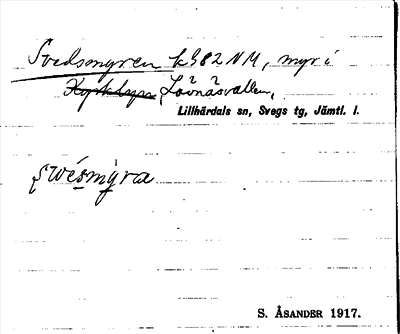 Svedsmyren k982 NM, myr i
Lövnäsvallen,
Lillhärdals sn, Svegs tg, Jämtl. l.
swésmy̆ra
S. ÅSANDER 1917.